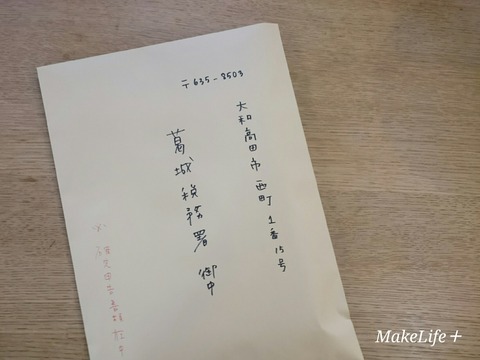 〒635-8503
大和高田市西町1番15号
葛城税務署 御中
MakeLife+